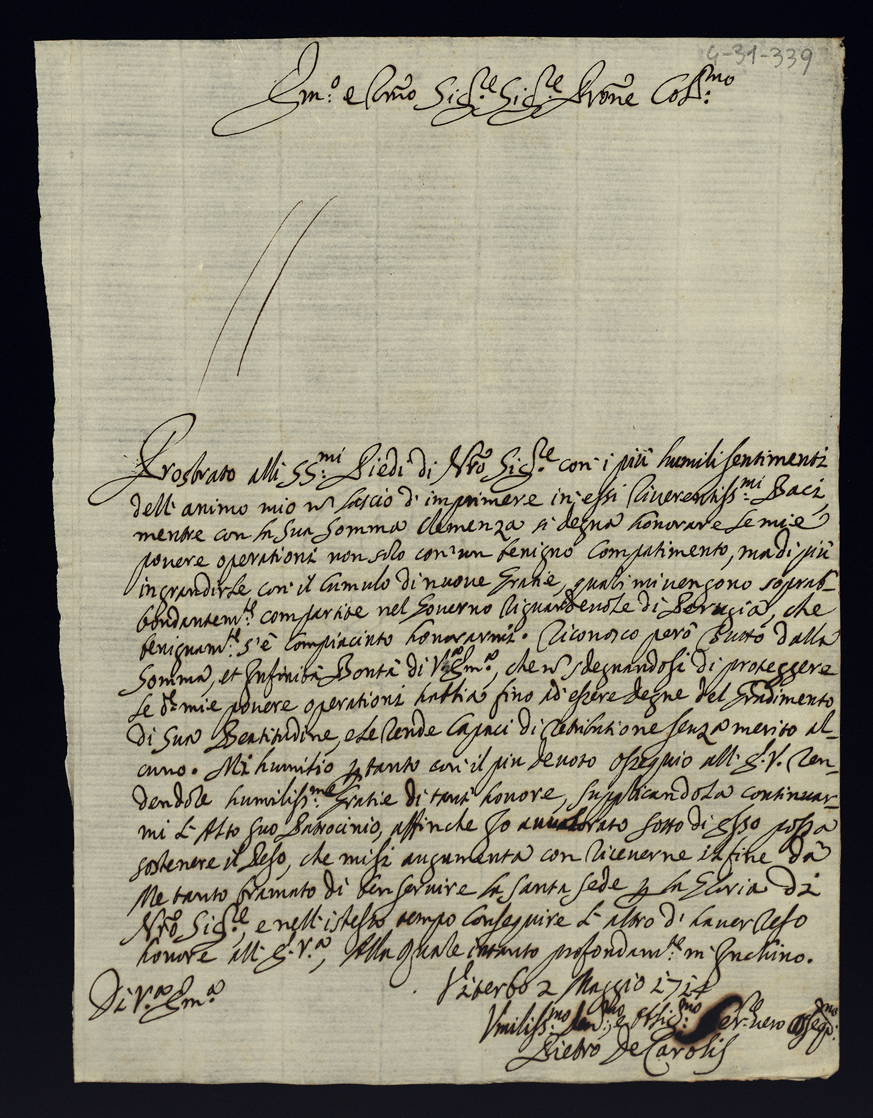 4-31-339
Em.º e Rmo Sig.re Sig.re Prone Col.mo
Prostrato alli SS.mi Piedi di Nrõ Sig.re con i più humili sentimenti
dell'animo mio ñ lascio d'imprimere in essi riverentiss.mi Baci,
mentre con la sua somma Clemenza si degna honorare le mie
povere operationi non solo con un benigno Compatimento, ma di più
ingrandirle con il Cumulo di nuove Gratie, quali mi vengono soprab-
bondantem.te compartite nel Governo riguardevole di Perugia, che
benignam.te s'è Compiaciuto honorarmi. Riconosco però tutto dalla
somma, et Infinita Bontà di V.ra Em.a, che ñ sdegnandosi di proteggere
le d.e mie povere operationi habbia fino ad essere degne del Gradimento
di Sua Beatitudine, e le rende Capaci di retributione senza merito al-
cuno. Mi humilio p tanto con il più devoto ossequio all'E.V. ren-
dendole humiliss.me Gratie di tant'honore, supplicandola continuar-
mi l'Alto suo Patrocinio, affinche Io avvalorato sotto di esso possa
sostenere il Peso, che mi si augumenta con riceverne in fine da
Me tanto bramato di ben servire la Santa Sede p la Gloria di
Nrõ Sig.re, e nell'istesso tempo Conseguire l'altro d'haver reso
honore all'E.V.a, Alla quale intanto profondam.te m'Inchino.
Di V.a Em.a
Viterbo 2 Maggio 171
Umiliss.mo Dev.mo e Obblig.mo Ser.re vero osseq.mo
Pietro De Carolis